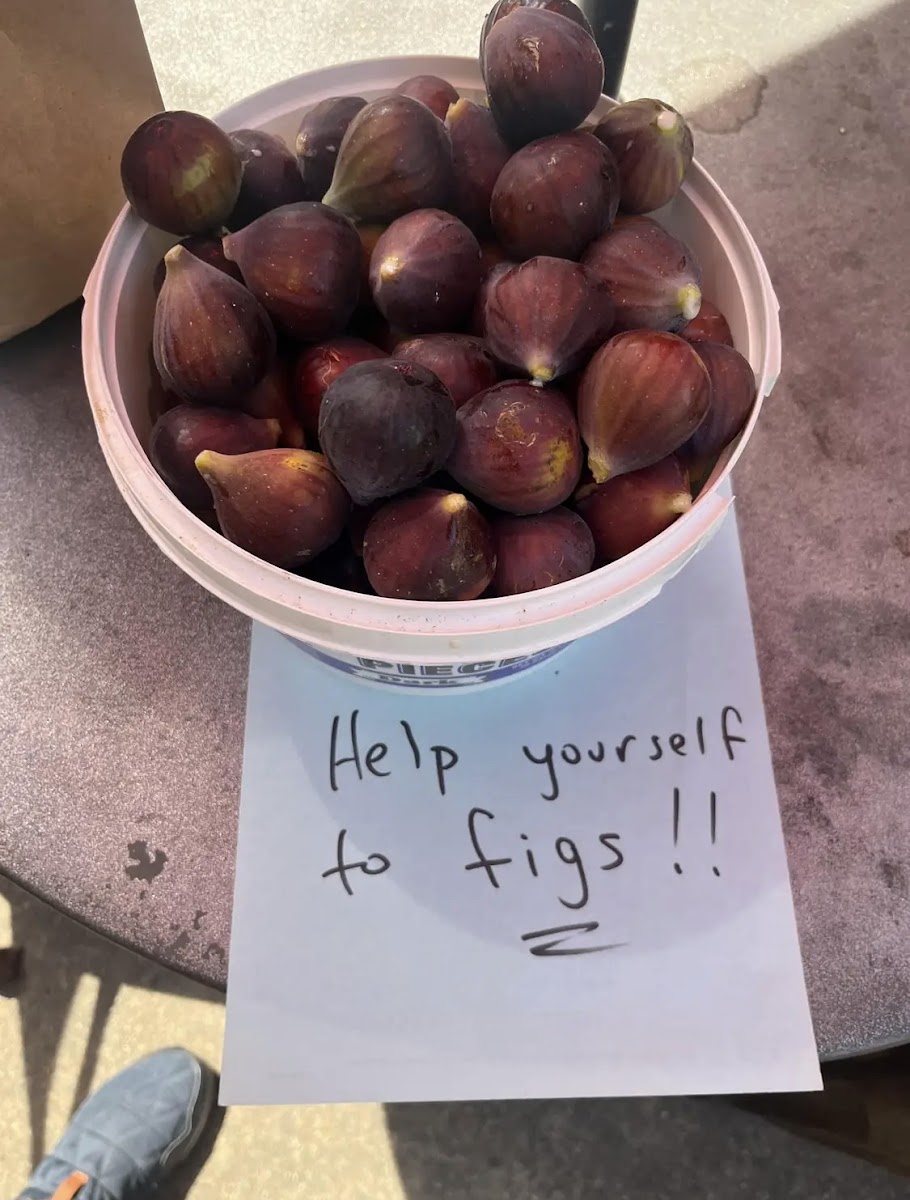 Dark
Help yourself
to figs!!